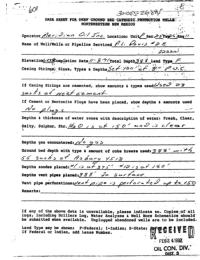 30-039-26895
DATA SHEET FOR DEEP GROUND BED CATHODIC PROTECTION WELLS
NORTHWESTERN NEW MEXICO
Operator Meridian Oil Inc. Location: Unit
Name of Well/Wells or Pipeline Serviced
Elevation Completion Date Total Depth 388' Land Type F
Casing Strings, Sizes, Types & Depths Set 100' of 8" P.V.C.
If Casing Strings are cemented, show amounts & types used Used 28
sacks of neat cement
If Cement or Bentonite Plugs have been placed, show depths & amounts used
No plugs
Depths & thickness of water zones with description of water: Fresh, Clear,
Salty, Sulphur, Etc. H2O is at 150' and is clear
Depths gas encountered: No gas
Ground bed depth with type & amount of coke breeze used: 388' with
Depths anodes placed:
Depths vent pipes placed: 388' to surface
Vent pipe perforations: Vent pipe is perforated up to 150'
Remarks:
If any of the above data is unavailable, please indicate so. Copies of all
logs, including Drillers Log, Water Analyses & Well Bore Schematics should
be submitted when available. Unplugged abandoned wells are to be included.
Land Type may be shown: F-Federal; I-Indian; S-State;
If Federal or Indian, add Lease Number.
RECEIVED
OIL CON. DIV.
DIST. 3